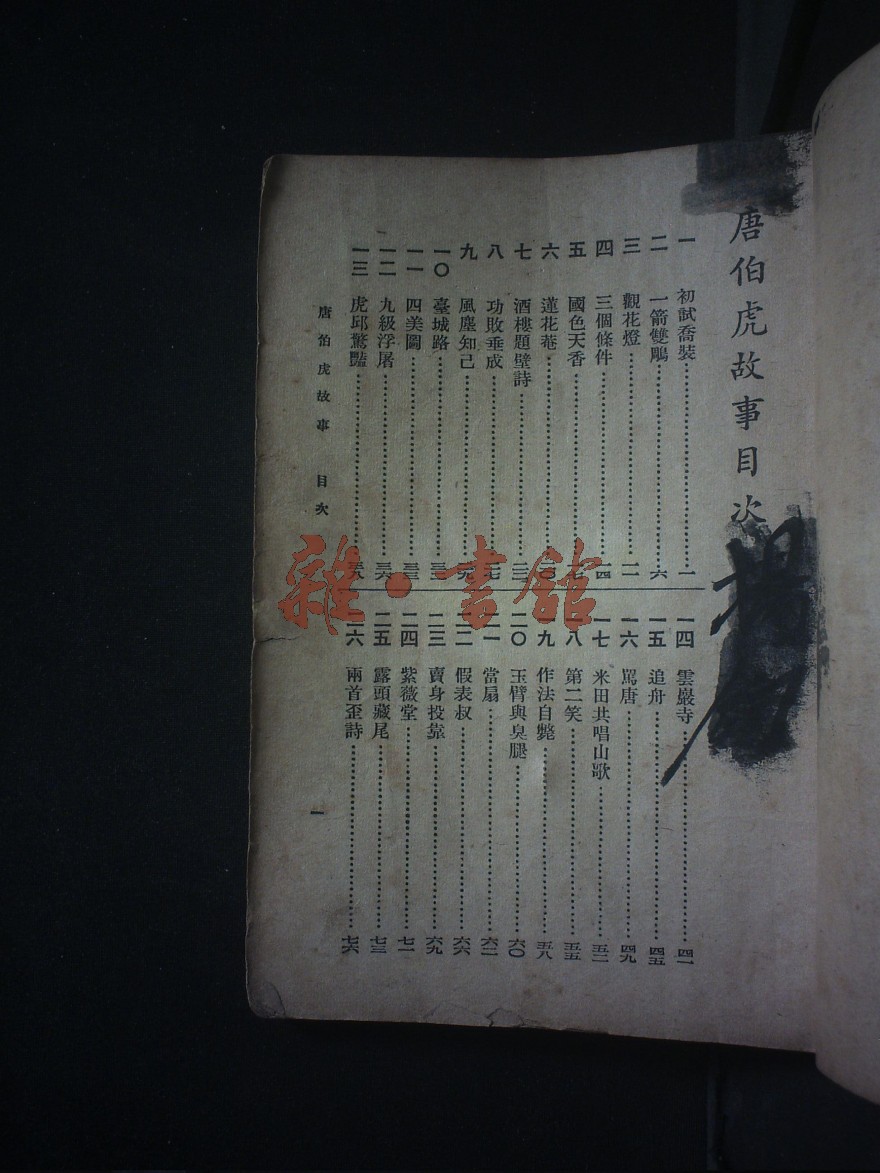 唐伯虎故事目次
一 初試喬裝……一
二 一箭雙鵰……六
三 觀花燈……一一
四 三個條件……一四
五 國色天香
六 蓮花菴
七 酒樓題壁詩
八 功敗垂成
九 風塵知己
一〇 臺城路
一一 四美圖
一二 九級浮屠
一三 虎邱驚豔
一四 雲巖寺……四一
一五 追舟……四五
一六 罵唐……四九
一七 米田共唱山歌……五二
一八 第二笑……五五
一九 作法自斃……五八
二〇 玉臂與臭腿……六〇
二一 當扇……六二
二二 假表叔……六六
二三 賣身投靠……六九
二四 紫薇堂……七一
二五 露頭藏尾……七三
二六 兩首歪詩……七六
唐伯虎故事 目次
一
雜·書館